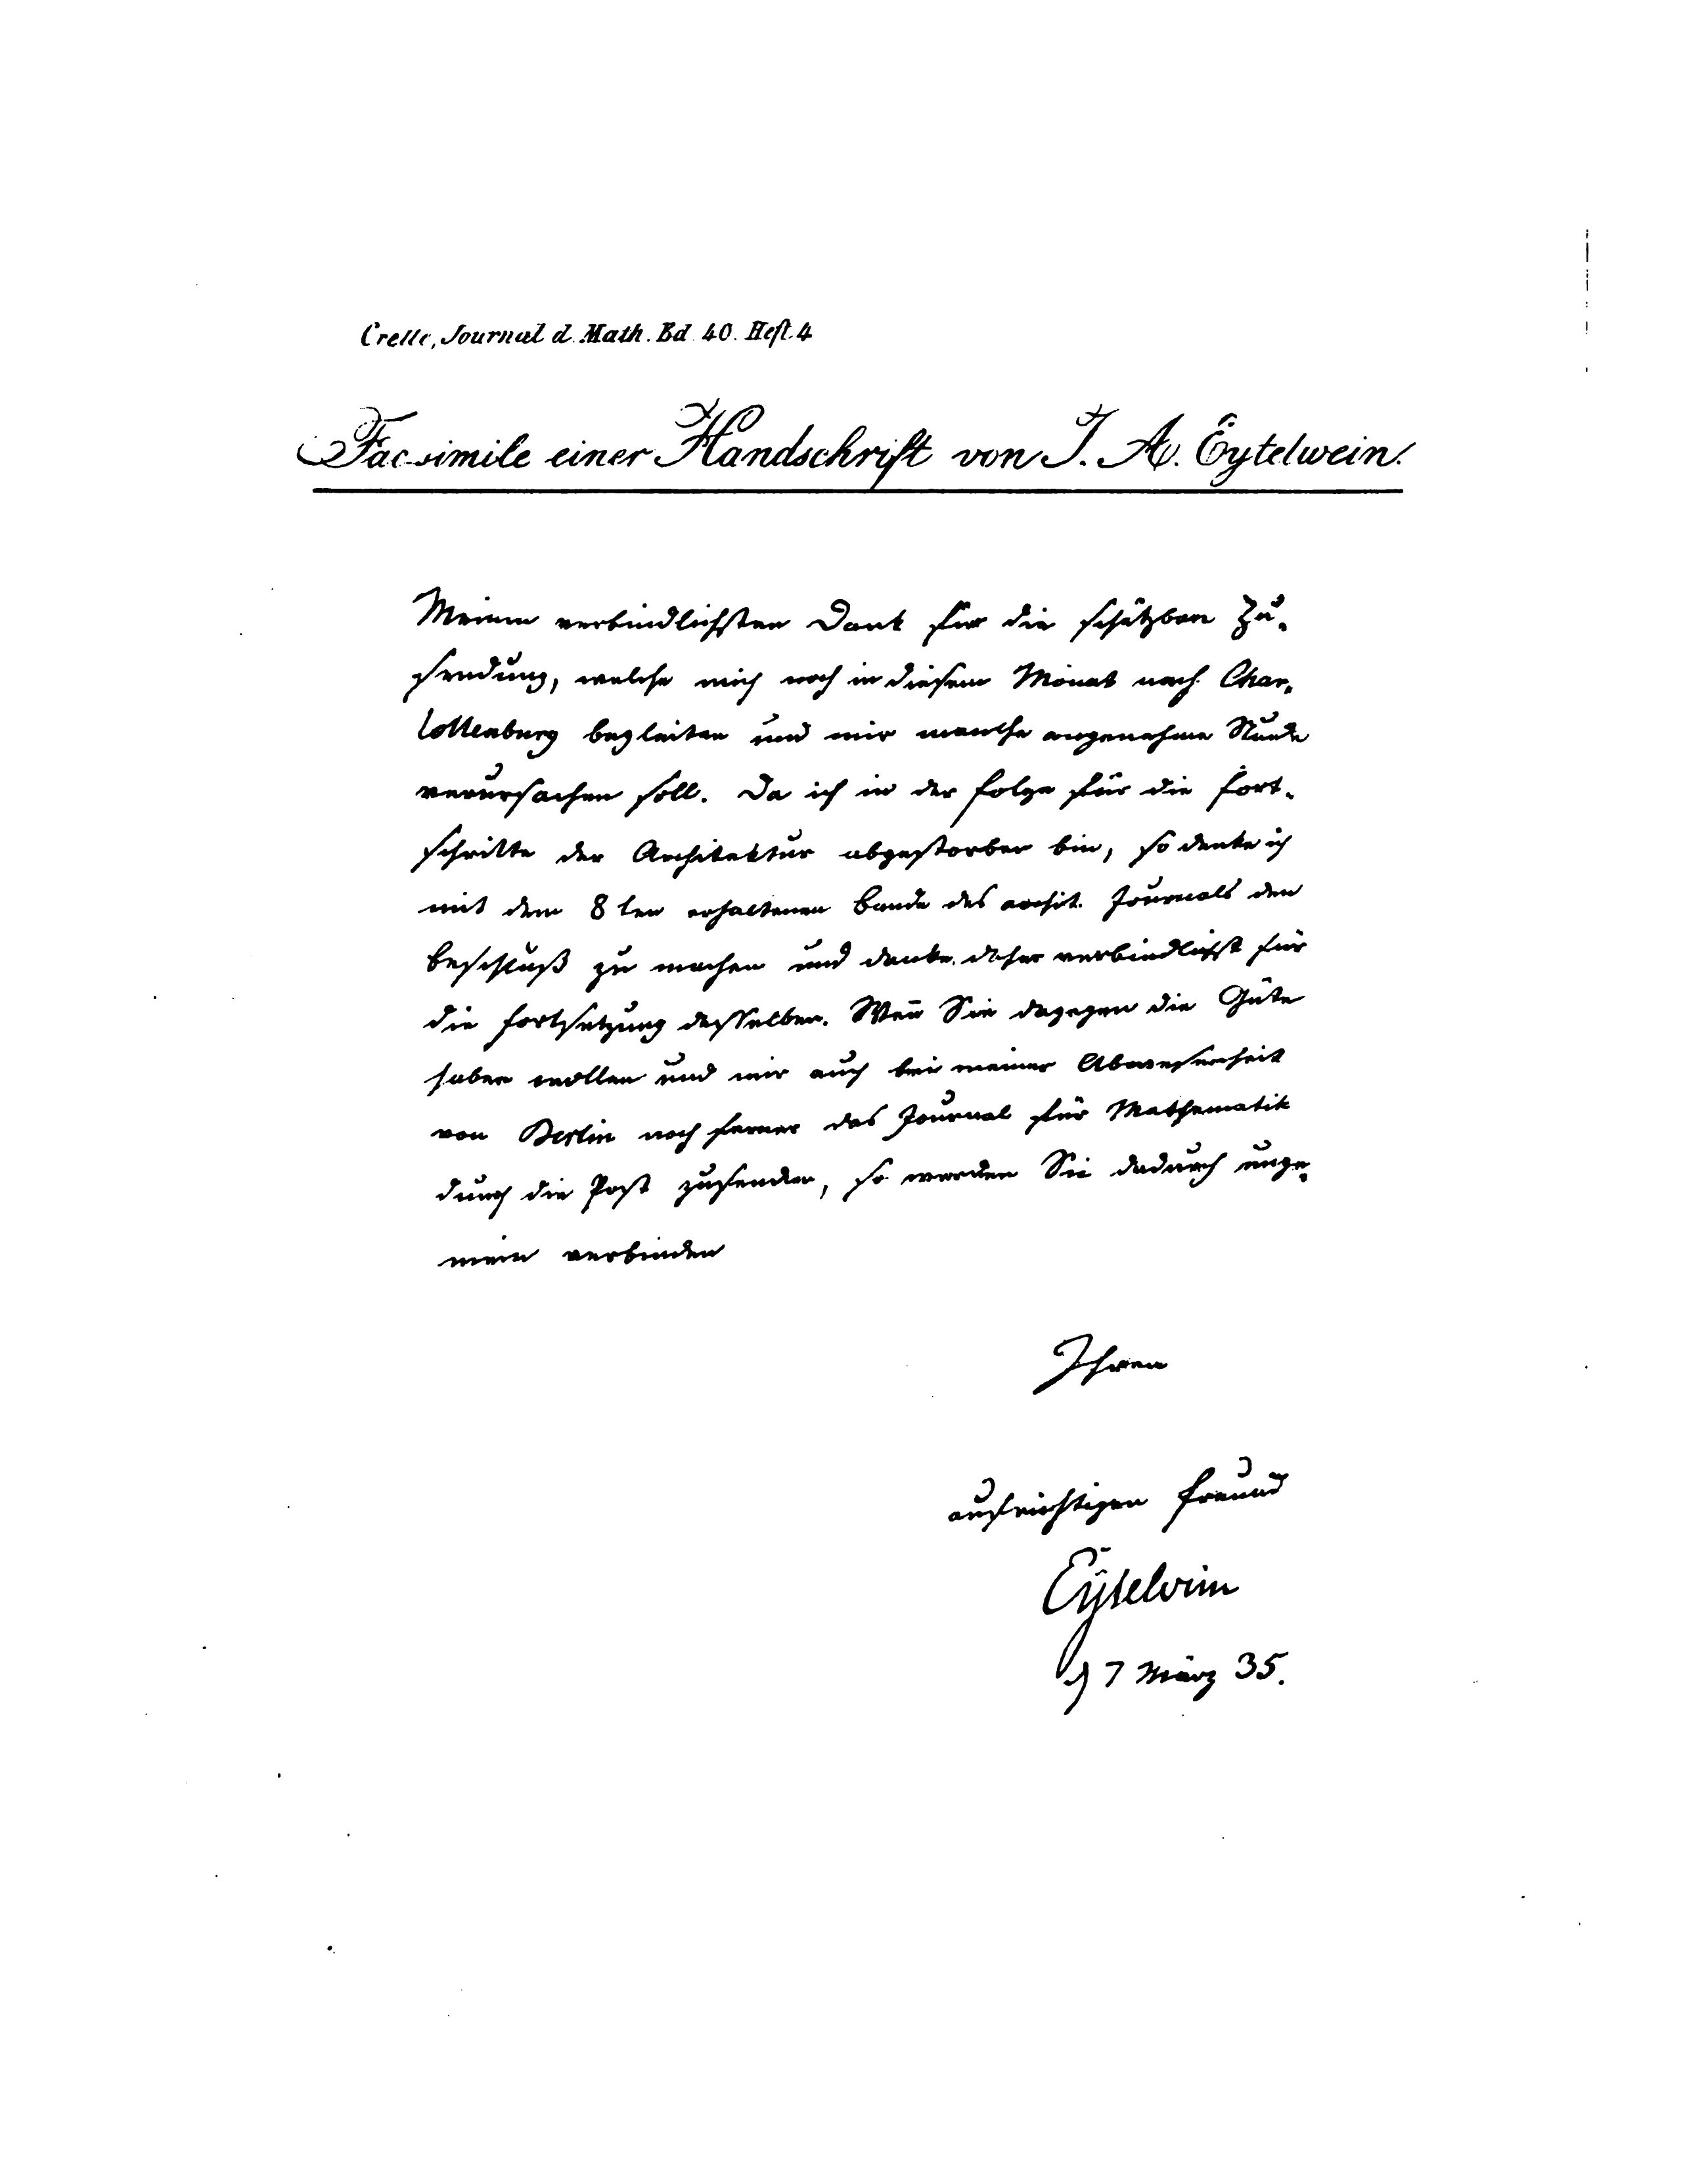 Crelle, Journal d. Math. Bd. 40. Heft. 4
Facsimile einer Handschrift von J. A. Eytelwein.
Meinen verbindlichsten Dank für die schätzbare Zu-
sendung, welche mich noch in diesem Monat nach Char-
lottenburg begleiten und mir manche angenehme Stunde
verursachen soll. Da ich in der Folge für die Fort-
schritte der Architektur abgestorben bin, so denke ich
mit dem 8ten erhaltenen Bande des archit. Journals den
Beschluß zu machen und danke daher verbindlichst für
die Fortsetzung desselben. Wen̄ Sie dagegen die Güte
haben wollen und mir auch bei meiner Abwesenheit
von Berlin noch ferner das Journal für Mathematik
durch die Post zusenden, so werden Sie dadurch unge-
mein verbinden
Ihren
aufrichtigen Freund
Eytelwein
7 März 35.